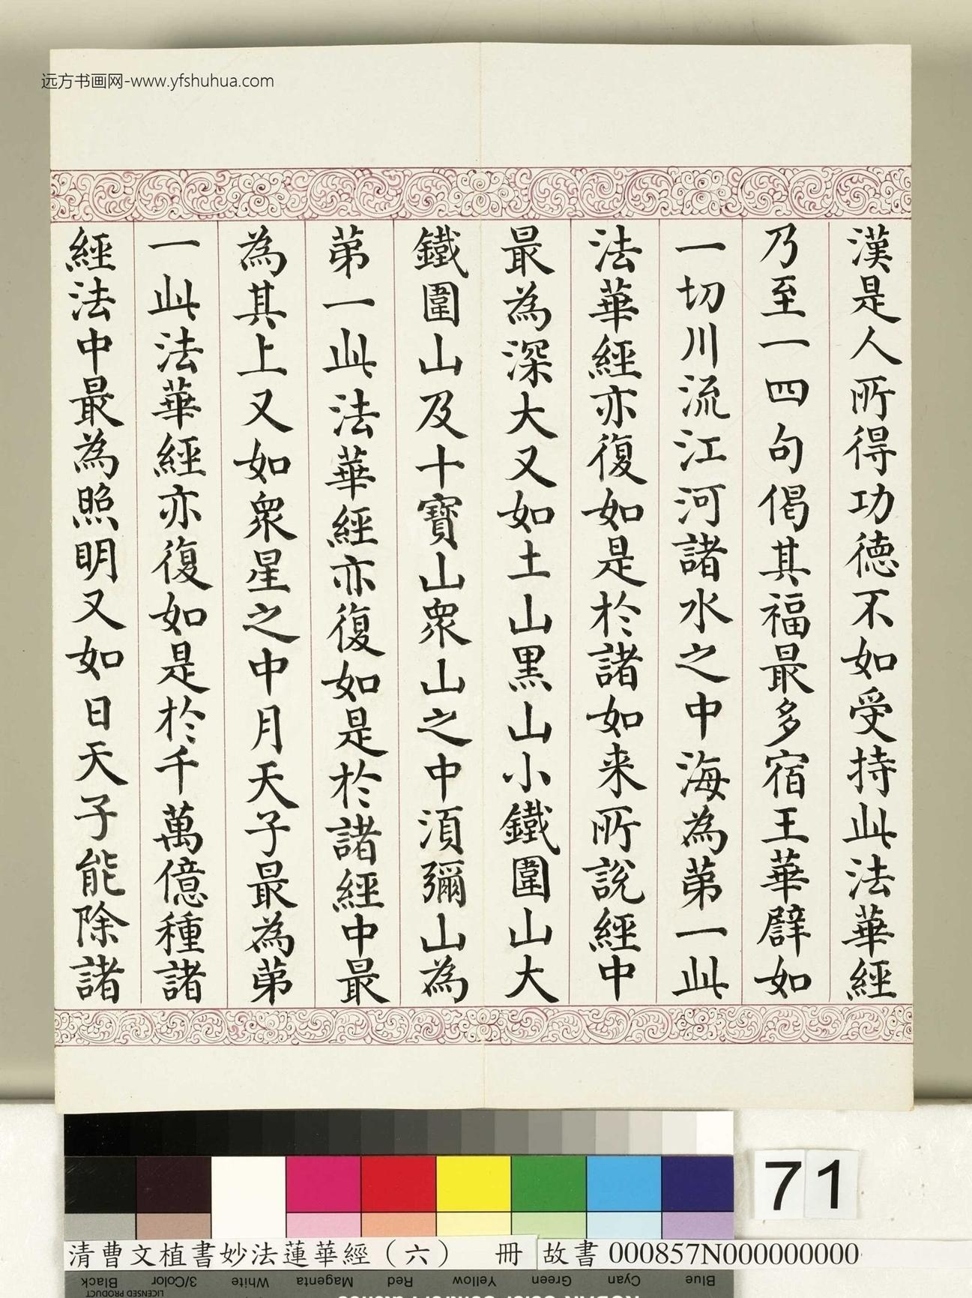 远方书画网-www.yfshuhua.com
漢是人所得功德不如受持此法華經
乃至一四句偈其福最多宿王華譬如
一切川流江河諸水之中海為第一此
法華經亦復如是於諸如来所說經中
最為深大又如土山黑山小鐵圍山大
鐵圍山及十寶山衆山之中須彌山為
第一此法華經亦復如是於諸經中最
為其上又如衆星之中月天子最為第
一此法華經亦復如是於千萬億種諸
經法中最為照明又如日天子能除諸
71
清曹文植書妙法蓮華經（六） 冊 故書 000857N000000000
Blue Cyan Green Yellow Red Magenta White 3/Color Black
LICENSED PRODUCT